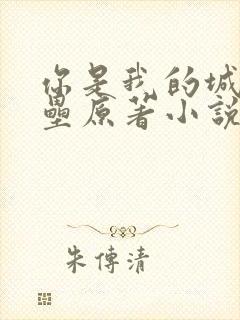 你是我的城
壘原著小說
朱傳清